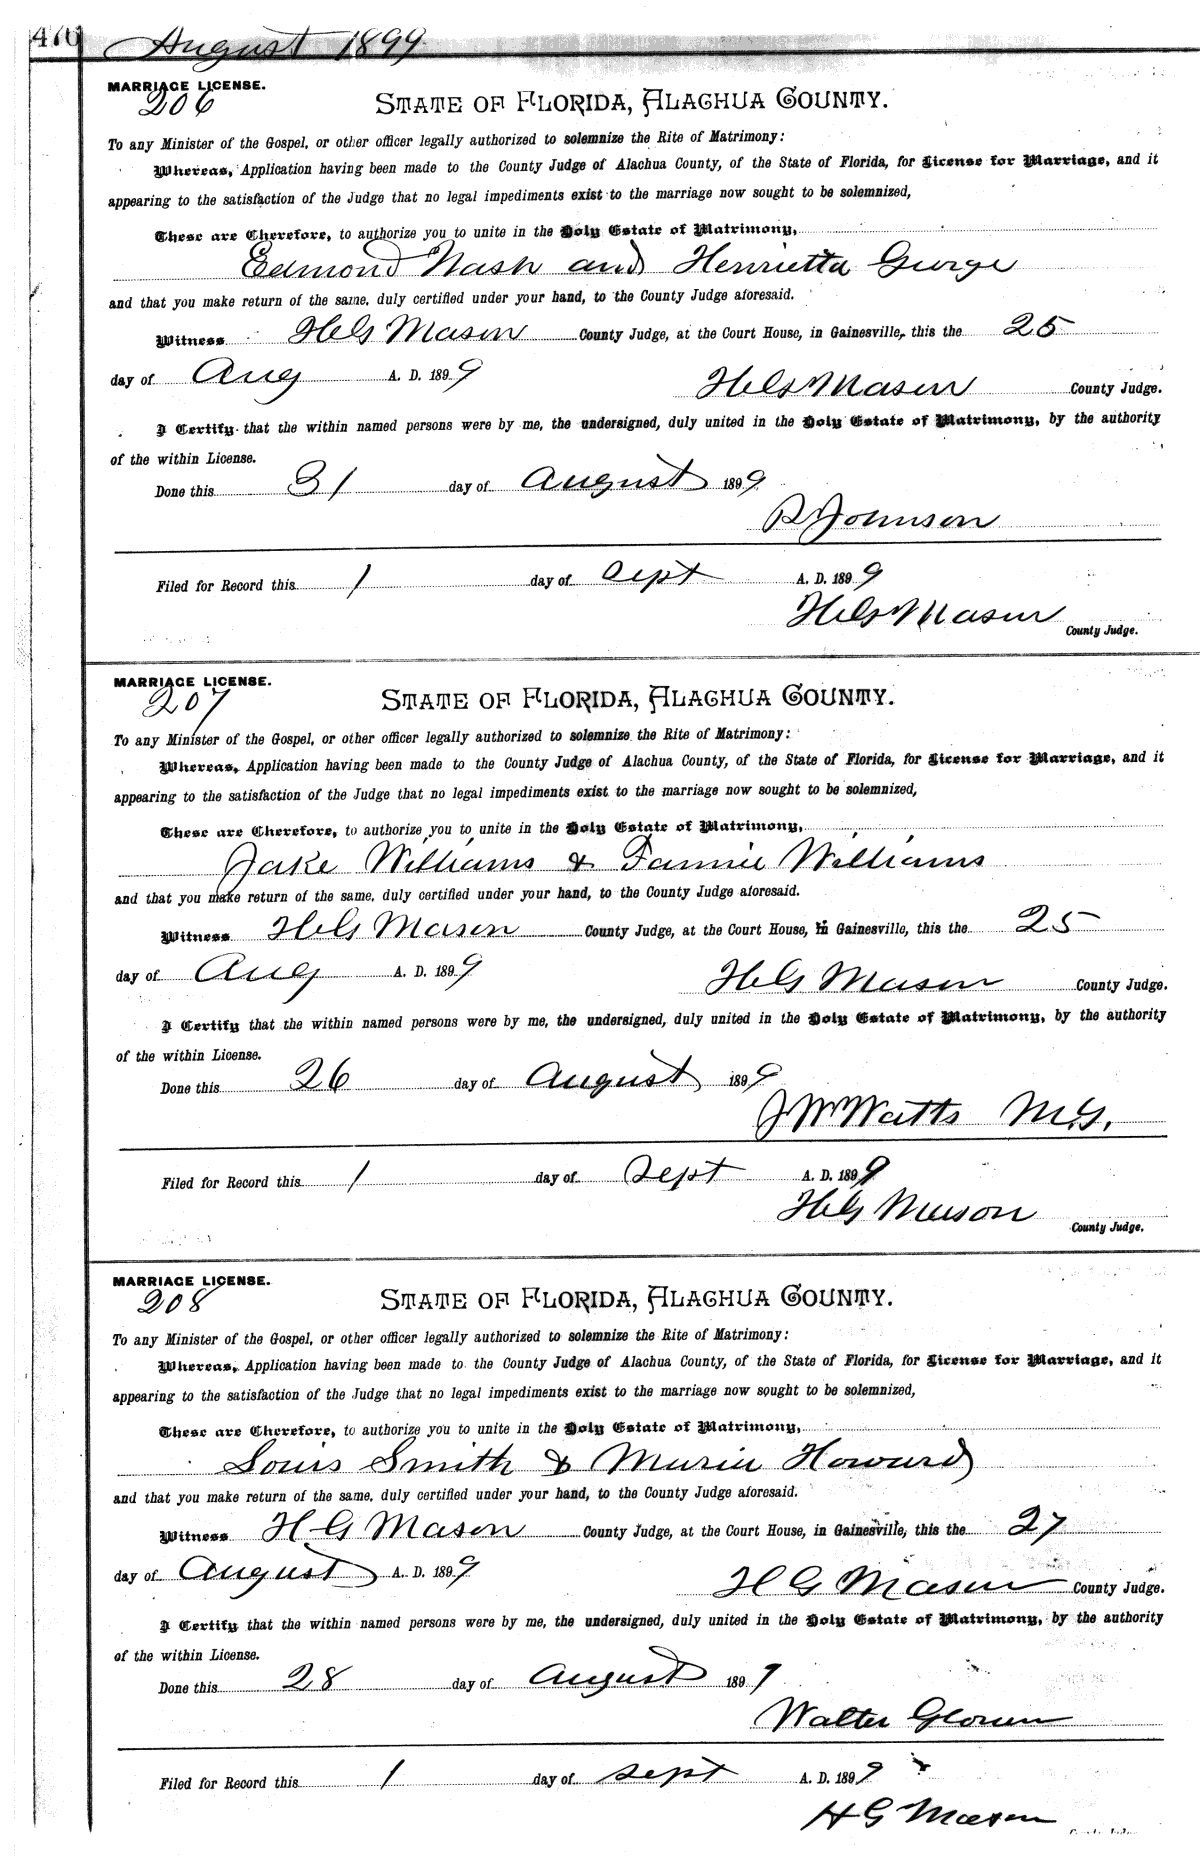 476 August 1899.
MARRIAGE LICENSE.
206
STATE OF FLORIDA, ALACHUA COUNTY.
To any Minister of the Gospel, or other officer legally authorized to solemnize the Rite of Matrimony:
Whereas, Application having been made to the County Judge of Alachua County, of the State of Florida, for License for Marriage, and it
appearing to the satisfaction of the Judge that no legal impediments exist to the marriage now sought to be solemnized,
These are Therefore, to authorize you to unite in the Holy Estate of Matrimony,
Edmond Nash and Henrietta George
and that you make return of the same, duly certified under your hand, to the County Judge aforesaid.
Witness H G Mason County Judge, at the Court House, in Gainesville, this the 25
day of Aug A. D. 1899
H G Mason County Judge.
I Certify that the within named persons were by me, the undersigned, duly united in the Holy Estate of Matrimony, by the authority
of the within License.
Done this 31 day of August 1899
R Johnson
Filed for Record this 1 day of Sept A. D. 1899
H G Mason
County Judge.
MARRIAGE LICENSE.
207
STATE OF FLORIDA, ALACHUA COUNTY.
To any Minister of the Gospel, or other officer legally authorized to solemnize the Rite of Matrimony:
Whereas, Application having been made to the County Judge of Alachua County, of the State of Florida, for License for Marriage, and it
appearing to the satisfaction of the Judge that no legal impediments exist to the marriage now sought to be solemnized,
These are Therefore, to authorize you to unite in the Holy Estate of Matrimony,
Jake Williams & Fannie Williams
and that you make return of the same, duly certified under your hand, to the County Judge aforesaid.
Witness H G Mason County Judge, at the Court House, in Gainesville, this the 25
day of Aug A. D. 1899
H G Mason County Judge.
I Certify that the within named persons were by me, the undersigned, duly united in the Holy Estate of Matrimony, by the authority
of the within License.
Done this 26 day of August 1899
J W Watts M.G.
Filed for Record this 1 day of Sept A. D. 1899
H G Mason
County Judge.
MARRIAGE LICENSE.
208
STATE OF FLORIDA, ALACHUA COUNTY.
To any Minister of the Gospel, or other officer legally authorized to solemnize the Rite of Matrimony:
Whereas, Application having been made to the County Judge of Alachua County, of the State of Florida, for License for Marriage, and it
appearing to the satisfaction of the Judge that no legal impediments exist to the marriage now sought to be solemnized,
These are Therefore, to authorize you to unite in the Holy Estate of Matrimony,
Louis Smith & Maria Howard
and that you make return of the same, duly certified under your hand, to the County Judge aforesaid.
Witness H G Mason County Judge, at the Court House, in Gainesville, this the 27
day of August A. D. 1899
H G Mason County Judge.
I Certify that the within named persons were by me, the undersigned, duly united in the Holy Estate of Matrimony, by the authority
of the within License.
Done this 28 day of August 1899
Walter
Filed for Record this 1 day of Sept A. D. 1899
H G Mason